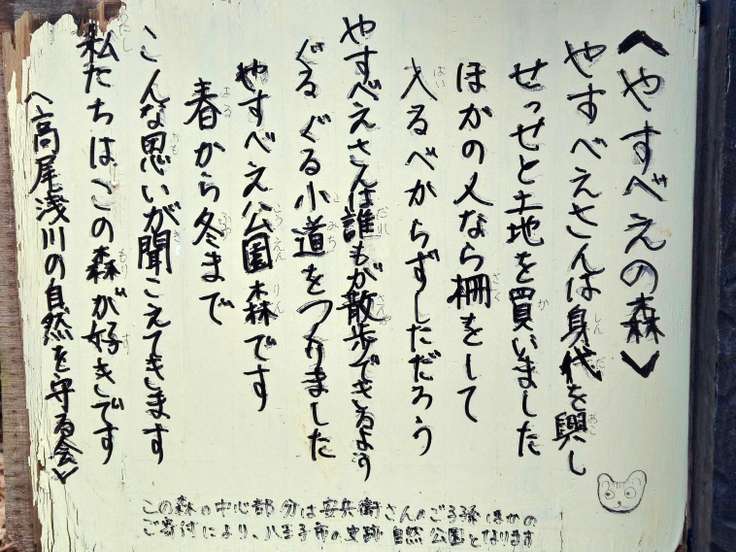 〈やすべえの森〉
やすべえさんは身代を興し
せっせと土地を買いました
ほかの人なら柵をして
入るべからずしただろう
やすべえさんは誰もが散歩できるよう
ぐるぐる小道をつくりました
やすべえ公園森です
春から冬まで
こんな思いが聞こえてきます
私たちはこの森が好きです
〈高尾浅川の自然を守る会〉
この森の中心部分は安兵衛さんのご子孫ほかの
ご寄付により、八王子市の史跡 自然 公園となります